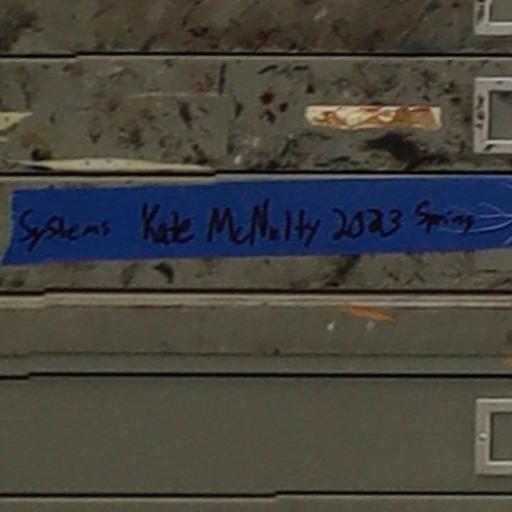 Systems Kate McNulty 2023 Spring